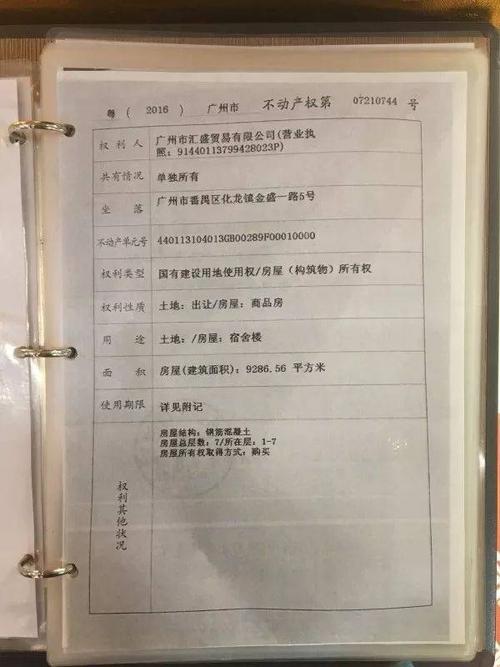 粤（ 2016 ） 广州市 不动产权第 07210744 号
权利人 广州市汇盛贸易有限公司(营业执
照：91440113799428023P)
共有情况 单独所有
坐落 广州市番禺区化龙镇金盛一路5号
不动产单元号 440113104013GB00289F00010000
权利类型 国有建设用地使用权/房屋（构筑物）所有权
权利性质 土地：出让/房屋：商品房
用途 土地：/房屋：宿舍楼
面积 房屋(建筑面积)：9286.56 平方米
使用期限 详见附记
权利其他状况
房屋结构：钢筋混凝土
房屋总层数：7/所在层：1-7
房屋所有权取得方式：购买